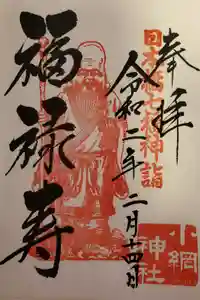 奉拝
日本橋七福神詣
令和二年二月十四日
福禄寿
小網
神社